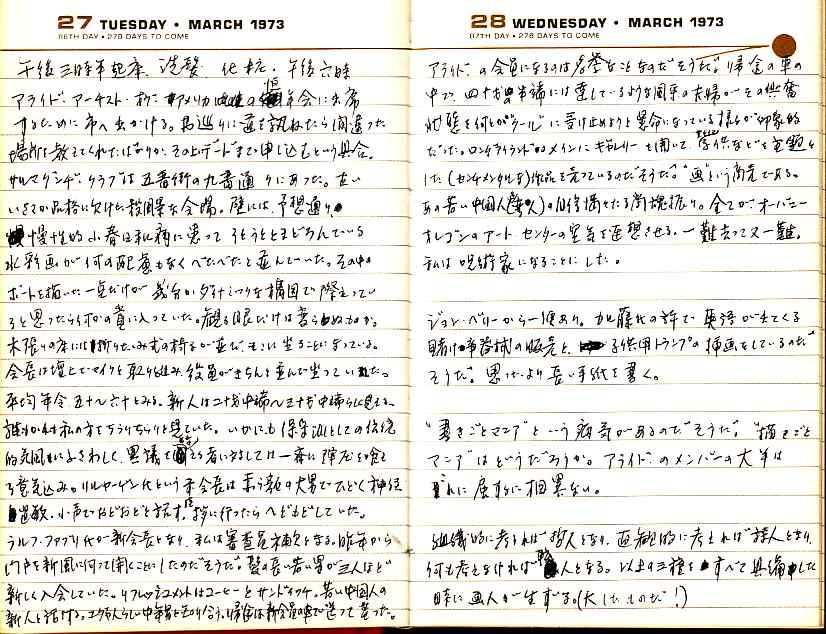 27 TUESDAY • MARCH 1973
86TH DAY • 279 DAYS TO COME
午後三時半起床、洗髪、化粧。午後六時
アライド・アーチスト・オブ・アメリカ の 年会に出席
するために市へ出かける。お巡りに道を訊ねたら間違った
場所を教えてくれたばかりか、その上デートまで申し込むという具合。
サルマグンデ・クラブは五番街の九番通りにあった。古い
いささか品格に欠けた殺風景な会場。壁には、予想通り、
慢性的小春日和病に患って そうとうとまどろんでいる
水彩画が何の配慮もなくべたべたと並んでいた。その中
ボートを描いた一点だけが 幾分かダイナミックな構図で際立ってい
ると思ったら何かの賞に入っていた。観る眼だけは変らぬものか。
木張りの床には折りたたみ式の椅子が並び、そこに坐ることになっている。
会長は壇上でマイクを取り組み、役員がきちんと並んで坐っていた。
平均年令五十〜六十とみる。新人は二十才中端〜三十才中端らしく見える。
誰もかれも私の方をちらりちらりと見ていた。いかにも保守派としての伝統
的気風にふさわしく、異議を 者に対しては一斉に陣を
る意気込み。 という 会長は 歌の大男でひどく神経
過敏、小声でおどおどと話す。挨拶に行ったらへどもどしていた。
ラルフ・ファブリ氏が新会長となり、私は審査員補欠となる。昨年から
門戸を新風に向って開くことにしたのだそうだ。髪の長い若い男が三人ほど
新しく入会していた。リフレッシュメントはコーヒーとサンドイッチ。若い中国人の
新人と話す。 らしい中年男 帰途は新会員の車で送って貰った。
28 WEDNESDAY • MARCH 1973
87TH DAY • 278 DAYS TO COME
アライドの会員になるのは名誉なことなのだそうだ。帰途の車の
中で、四十才の半端には達しているような同年の夫婦がその興奮
状態を何とか"クール"に受け止めようと懸命になっている様子が印象的
だった。ロングアイランドのメインにギャラリーを開いて、 などを主題に
した(センチメンタルな)作品を売っているのだそうだ。"画"という商売である。
あの若い中国人(美人)の自信満ちたる 振り。全てが、オーバニー
オレゴンのアート センターの空気を連想させる。一難去って又一難。
私は呪術家になることにした。
ジョン・ベリーから一便あり。加藤氏の許で英語が出てくる
賭け事器械の販売と、子供用トランプの挿画をしているのだ
そうだ。思ったより長い手紙を書く。
"書きごとマニア"という病気があるのだそうだ。"描きごと
マニア"はどうだろうか。アライドのメンバーの大半は
それに属すに相異ない。
組織的に考えれば哲人となり、直観的に考えれば詩人となり、
何も考えなければ 人となる。以上の三種をすべて具備した
時に画人が生ずる。(大したものだ!)